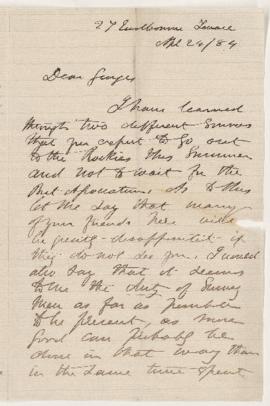 27 Eastbourne Terrace
Apl 24/84
Dear
I have learned
through two different sources
that you expect to go out
to the Rockies this Summer
and not to wait for the
Brit Association. As to this
let me say that many
of your friends here will
be greatly disappointed if
they do not see you. I would
also say that it seems
to me the duty of
men as far as possible
to be present, as more
good can probably be
done in that way than
in the same time spent